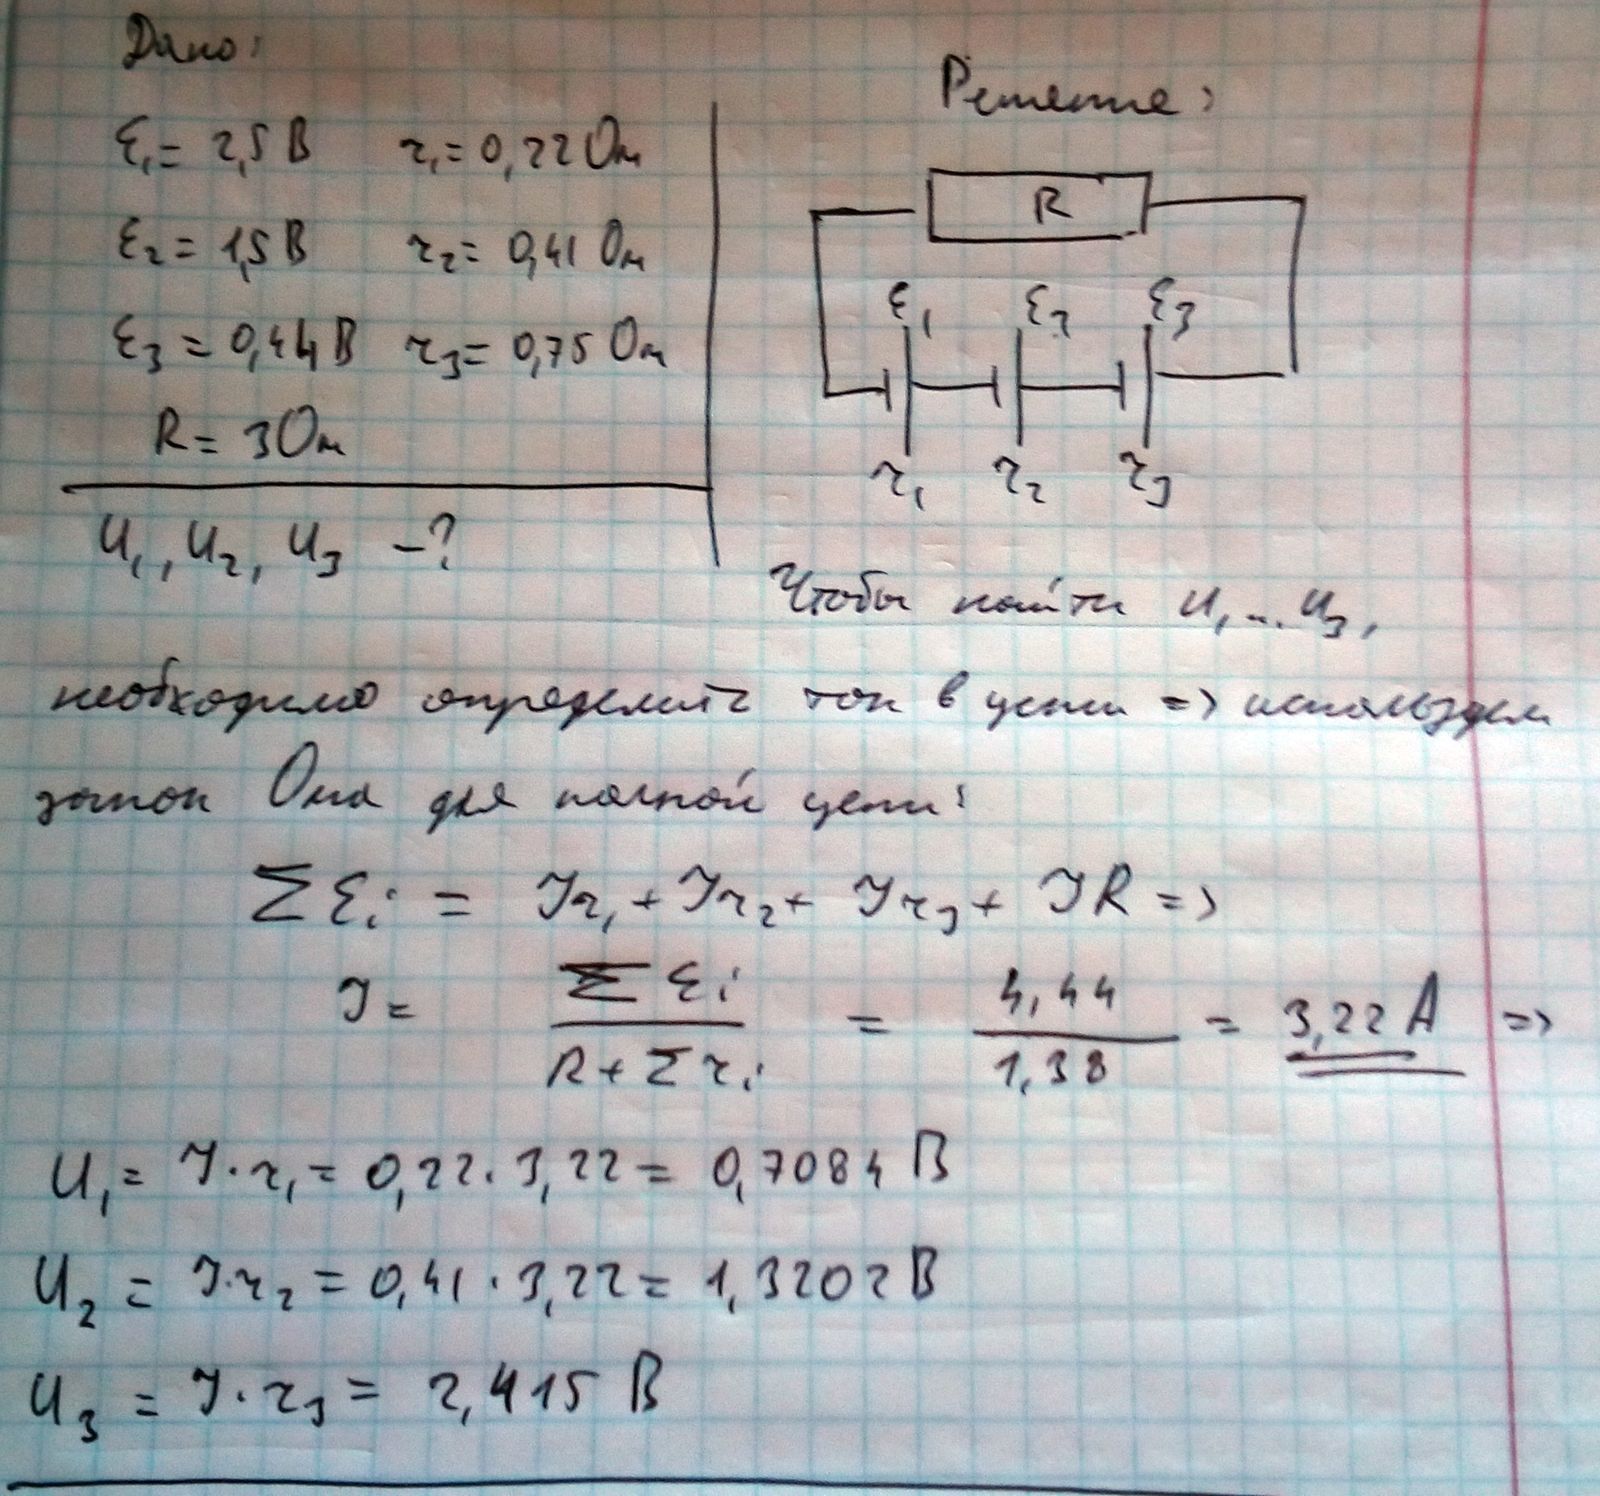 Дано:
Решение:
ε₁ = 2,5 В r₁ = 0,22 Ом
ε₂ = 1,5 В r₂ = 0,41 Ом
ε₃ = 0,44 В r₃ = 0,75 Ом
R = 3 Ом
U₁, U₂, U₃ - ?
R
ε₁ ε₂ ε₃
r₁ r₂ r₃
Чтобы найти U₁...U₃,
необходимо определить ток в цепи => используем
закон Ома для полной цепи:
Σ εᵢ = Ir₁ + Ir₂ + Ir₃ + IR =>
I = Σ εᵢ / (R + Σ rᵢ) = 4,44 / 1,38 = 3,22 А =>
U₁ = I · r₁ = 0,22 · 3,22 = 0,7084 В
U₂ = I · r₂ = 0,41 · 3,22 = 1,3202 В
U₃ = I · r₃ = 2,415 В